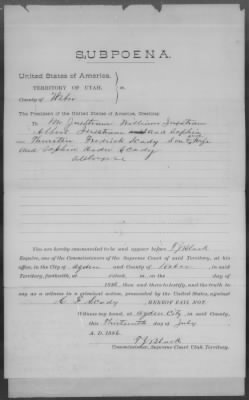 SUBPOENA.
United States of America.
TERRITORY OF UTAH, } ss.
County of Weber
The President of the United States of America, Greeting:
To Mr
and Sophia
Fredrick
Son &
and Sophia
You are hereby commanded to be and appear before P J Black
Esquire, one of the Commissioners of the Supreme Court of said Territory, at his
office, in the City of Ogden and County of Weber, in said
Territory, forthwith, at o'clock, m., on the day of
1886, then and there to testify, and the truth to
say as a witness in a criminal action, prosecuted by the United States, against
HEREOF FAIL NOT.
Witness my hand, at Ogden City, in said County,
this Thirteenth day of July
A. D. 1886.
P J Black
Commissioner, Supreme Court Utah Territory.